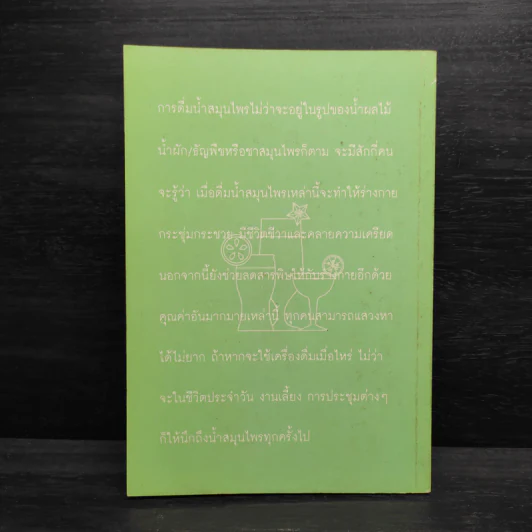 การดื่มน้ำสมุนไพรไม่ว่าจะอยู่ในรูปของน้ำผลไม้
น้ำผัก/ธัญพืชหรือชาสมุนไพรก็ตาม จะมีสักกี่คน
จะรู้ว่า เมื่อดื่มน้ำสมุนไพรเหล่านี้จะทำให้ร่างกาย
กระชุ่มกระชวย มีชีวิตชีวาและคลายความเครียด
นอกจากนี้ยังช่วยลดสารพิษให้กับร่างกายอีกด้วย
คุณค่าอันมากมายเหล่านี้ ทุกคนสามารถแสวงหา
ได้ไม่ยาก ถ้าหากจะใช้เครื่องดื่มเมื่อไหร่ ไม่ว่า
จะในชีวิตประจำวัน งานเลี้ยง การประชุมต่างๆ
ก็ให้นึกถึงน้ำสมุนไพรทุกครั้งไป